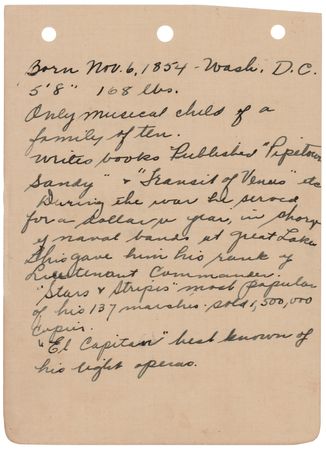 Born Nov. 6, 1854 - Wash. D.C.
5'8" 168 lbs.
Only musical child of a
family of ten.
Writes books Published "Pipetown
Sandy" & "Transit of Venus" etc
During the war he served
for a dollar a year, in charge
of naval bands, at Great Lakes
This gave him his rank of
Lieutenant Commander.
"Stars & Stripes" most popular
of his 137 marches. sold 1,500,000
copies.
"El Capitan" best known of
his light operas.